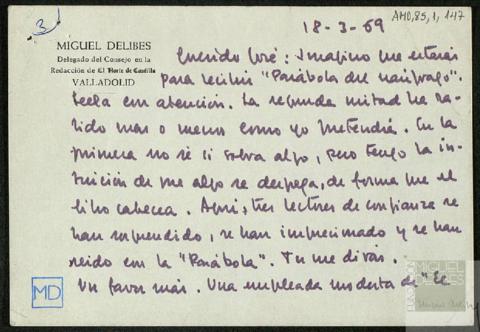 3
18-3-69
AMD,85,1,147
MIGUEL DELIBES
Delegado del Consejo en la
Redacción de El Norte de Castilla
VALLADOLID
Querido José: Imagino que estarás
para recibir "Parábola del náufrago".
Léela con atención. La segunda mitad ha sa-
lido más o menos como yo pretendía. En la
primera no sé si sobra algo, pero tengo la in-
tuición de que algo se despega, de forma que el
libro cabecea. Aquí, tres lectores de confianza se
han sorprendido, se han impresionado y se han
reído con la "Parábola". Tú me dirás.
Un favor más. Una empleada modesta de "El
MD
FUNDACIÓN
MIGUEL
DELIBES